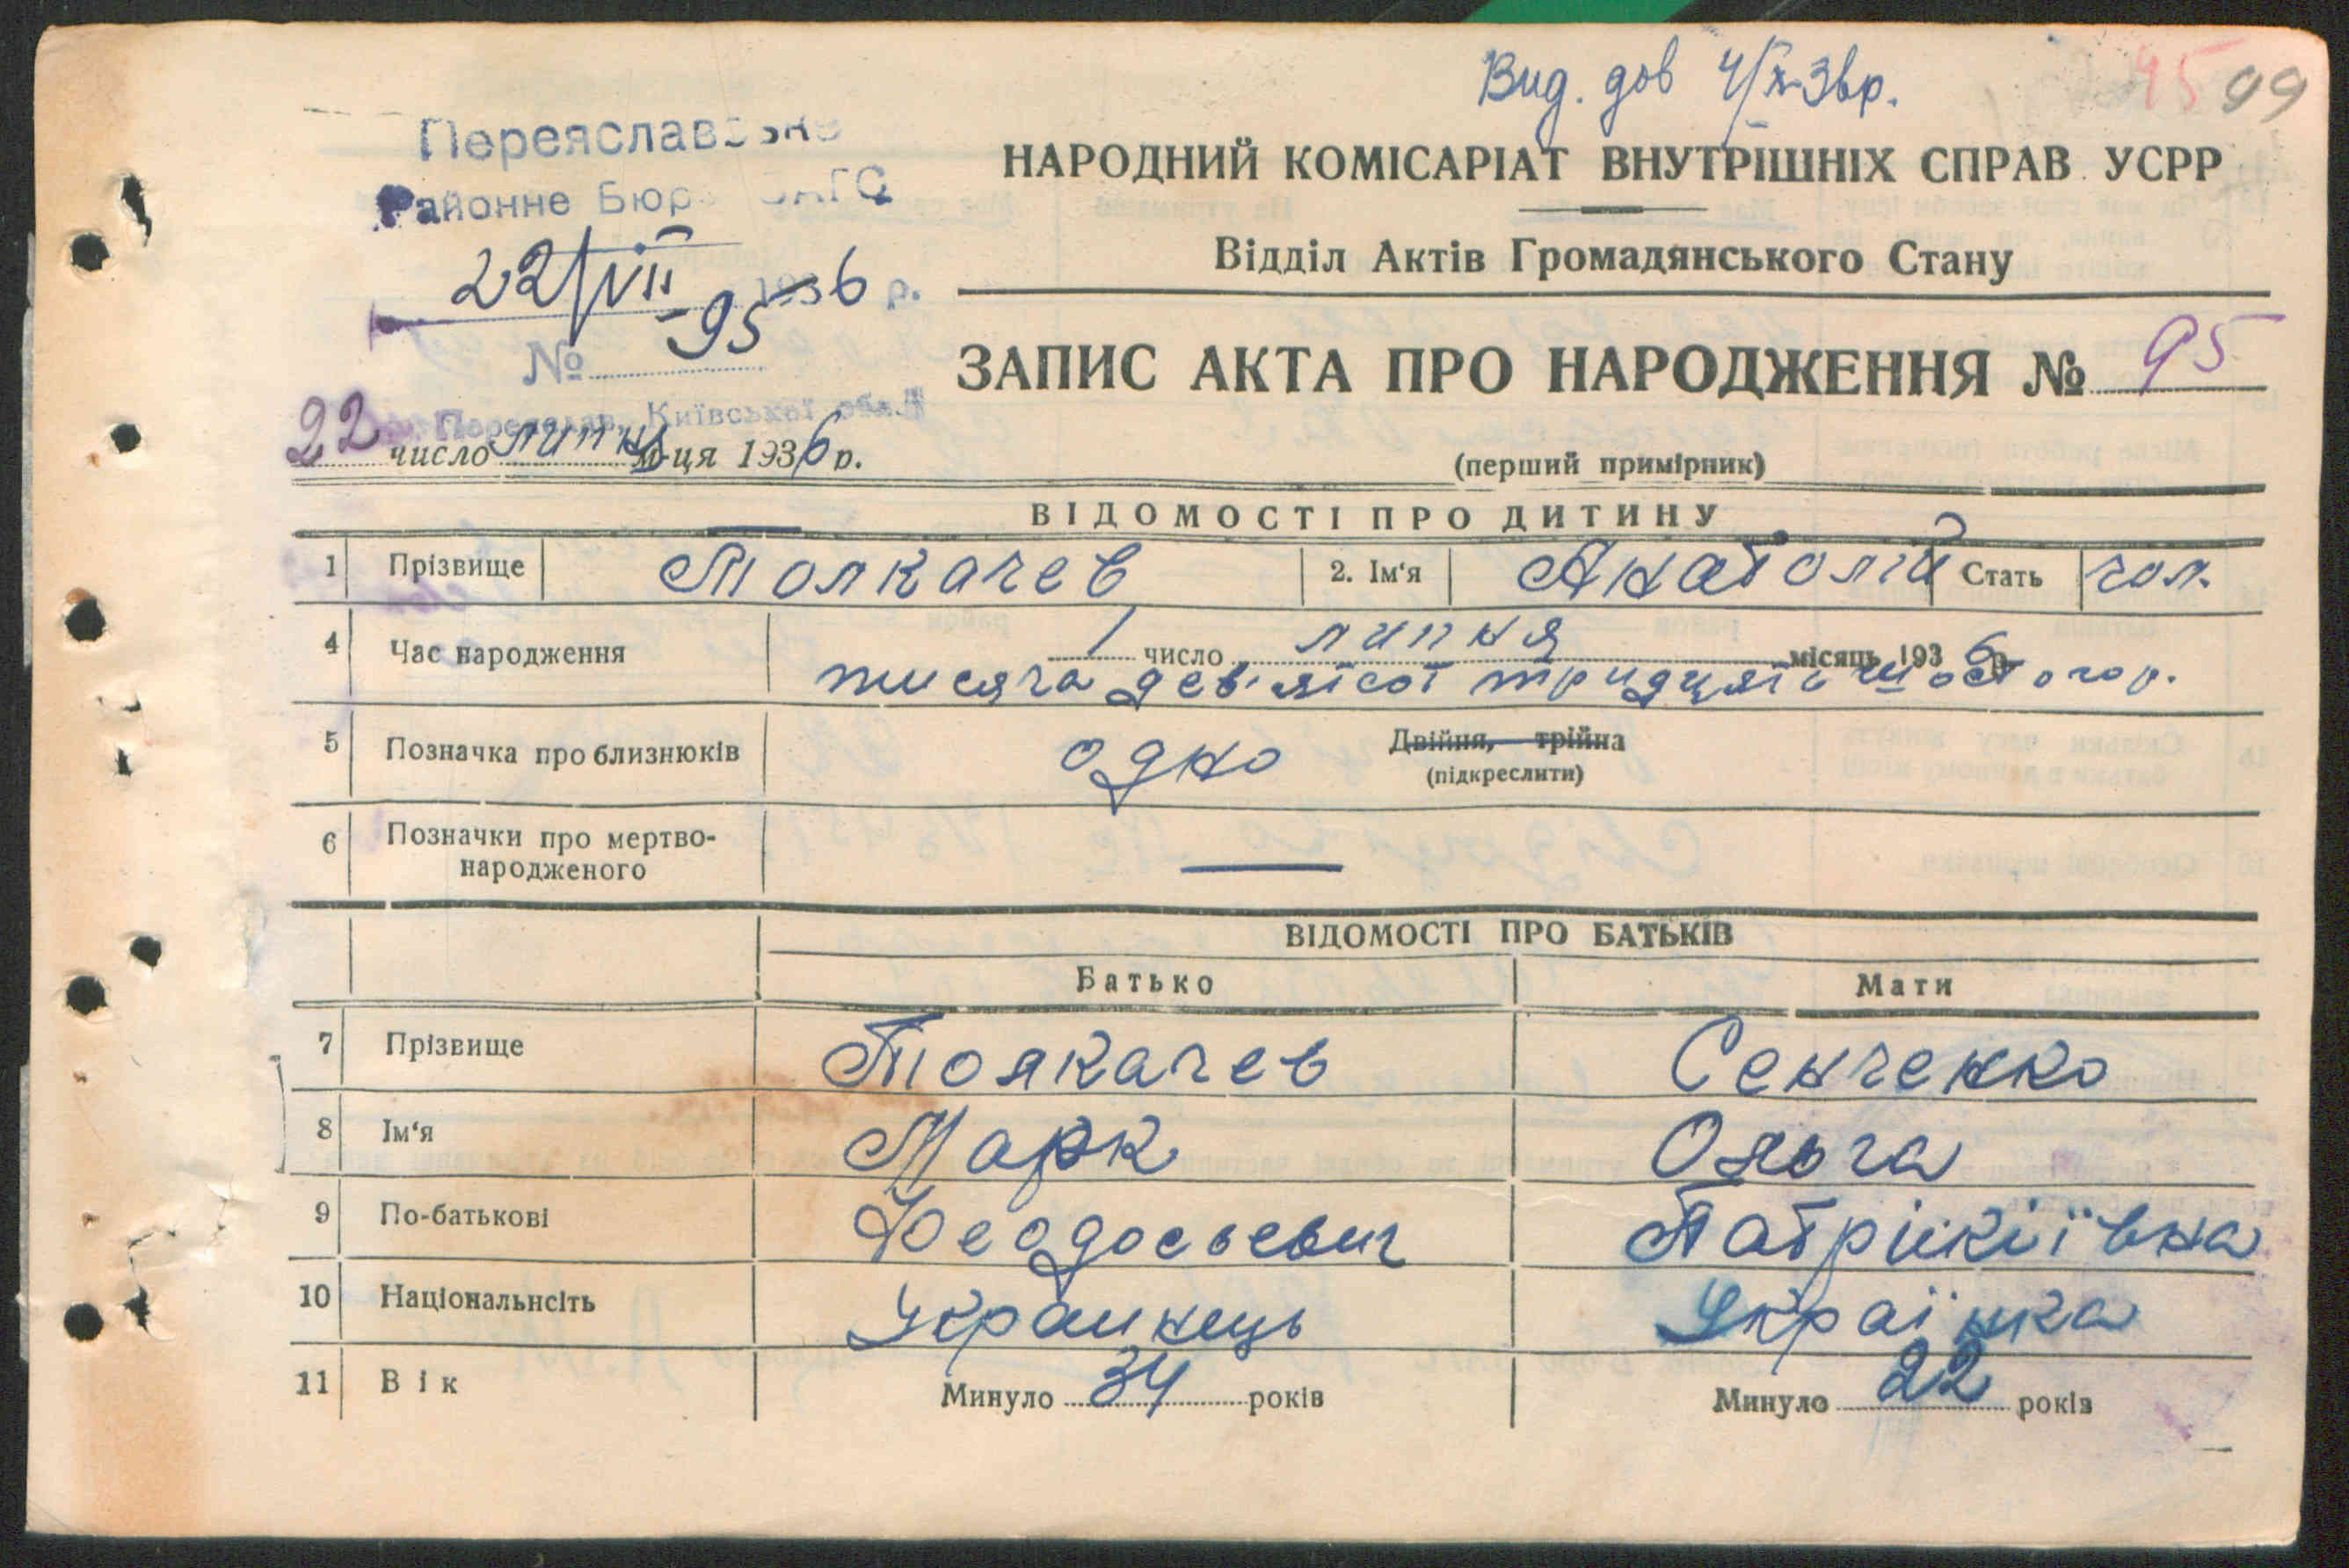 Вид. дов 4/X-36р.
45 99
Переяславське
Районне Бюро ЗАГС
22/VII 1936 р.
№ 95
Переяслав, Київської обл.
НАРОДНИЙ КОМІСАРІАТ ВНУТРІШНІХ СПРАВ УСРР
Відділ Актів Громадянського Стану
ЗАПИС АКТА ПРО НАРОДЖЕННЯ № 95
22 число липня м-ця 1936 р.
(перший примірник)
ВІДОМОСТІ ПРО ДИТИНУ
1 Прізвище Толкачев 2. Ім‘я Анатолій Стать чол.
4 Час народження 1 число липня місяць 1936 р.
тисяча дев'ятсот тридцять шостого р.
5 Позначка про близнюків одно Двійня, трійня
(підкреслити)
6 Позначки про мертво-
народженого —
ВІДОМОСТІ ПРО БАТЬКІВ
Батько Мати
7 Прізвище Толкачев Сенченко
8 Ім‘я Марк Ольга
9 По-батькові Феодосьевич Патрікіївна
10 Національнсіть Украинець Українка
11 Вік Минуло 34 років Минуло 22 років